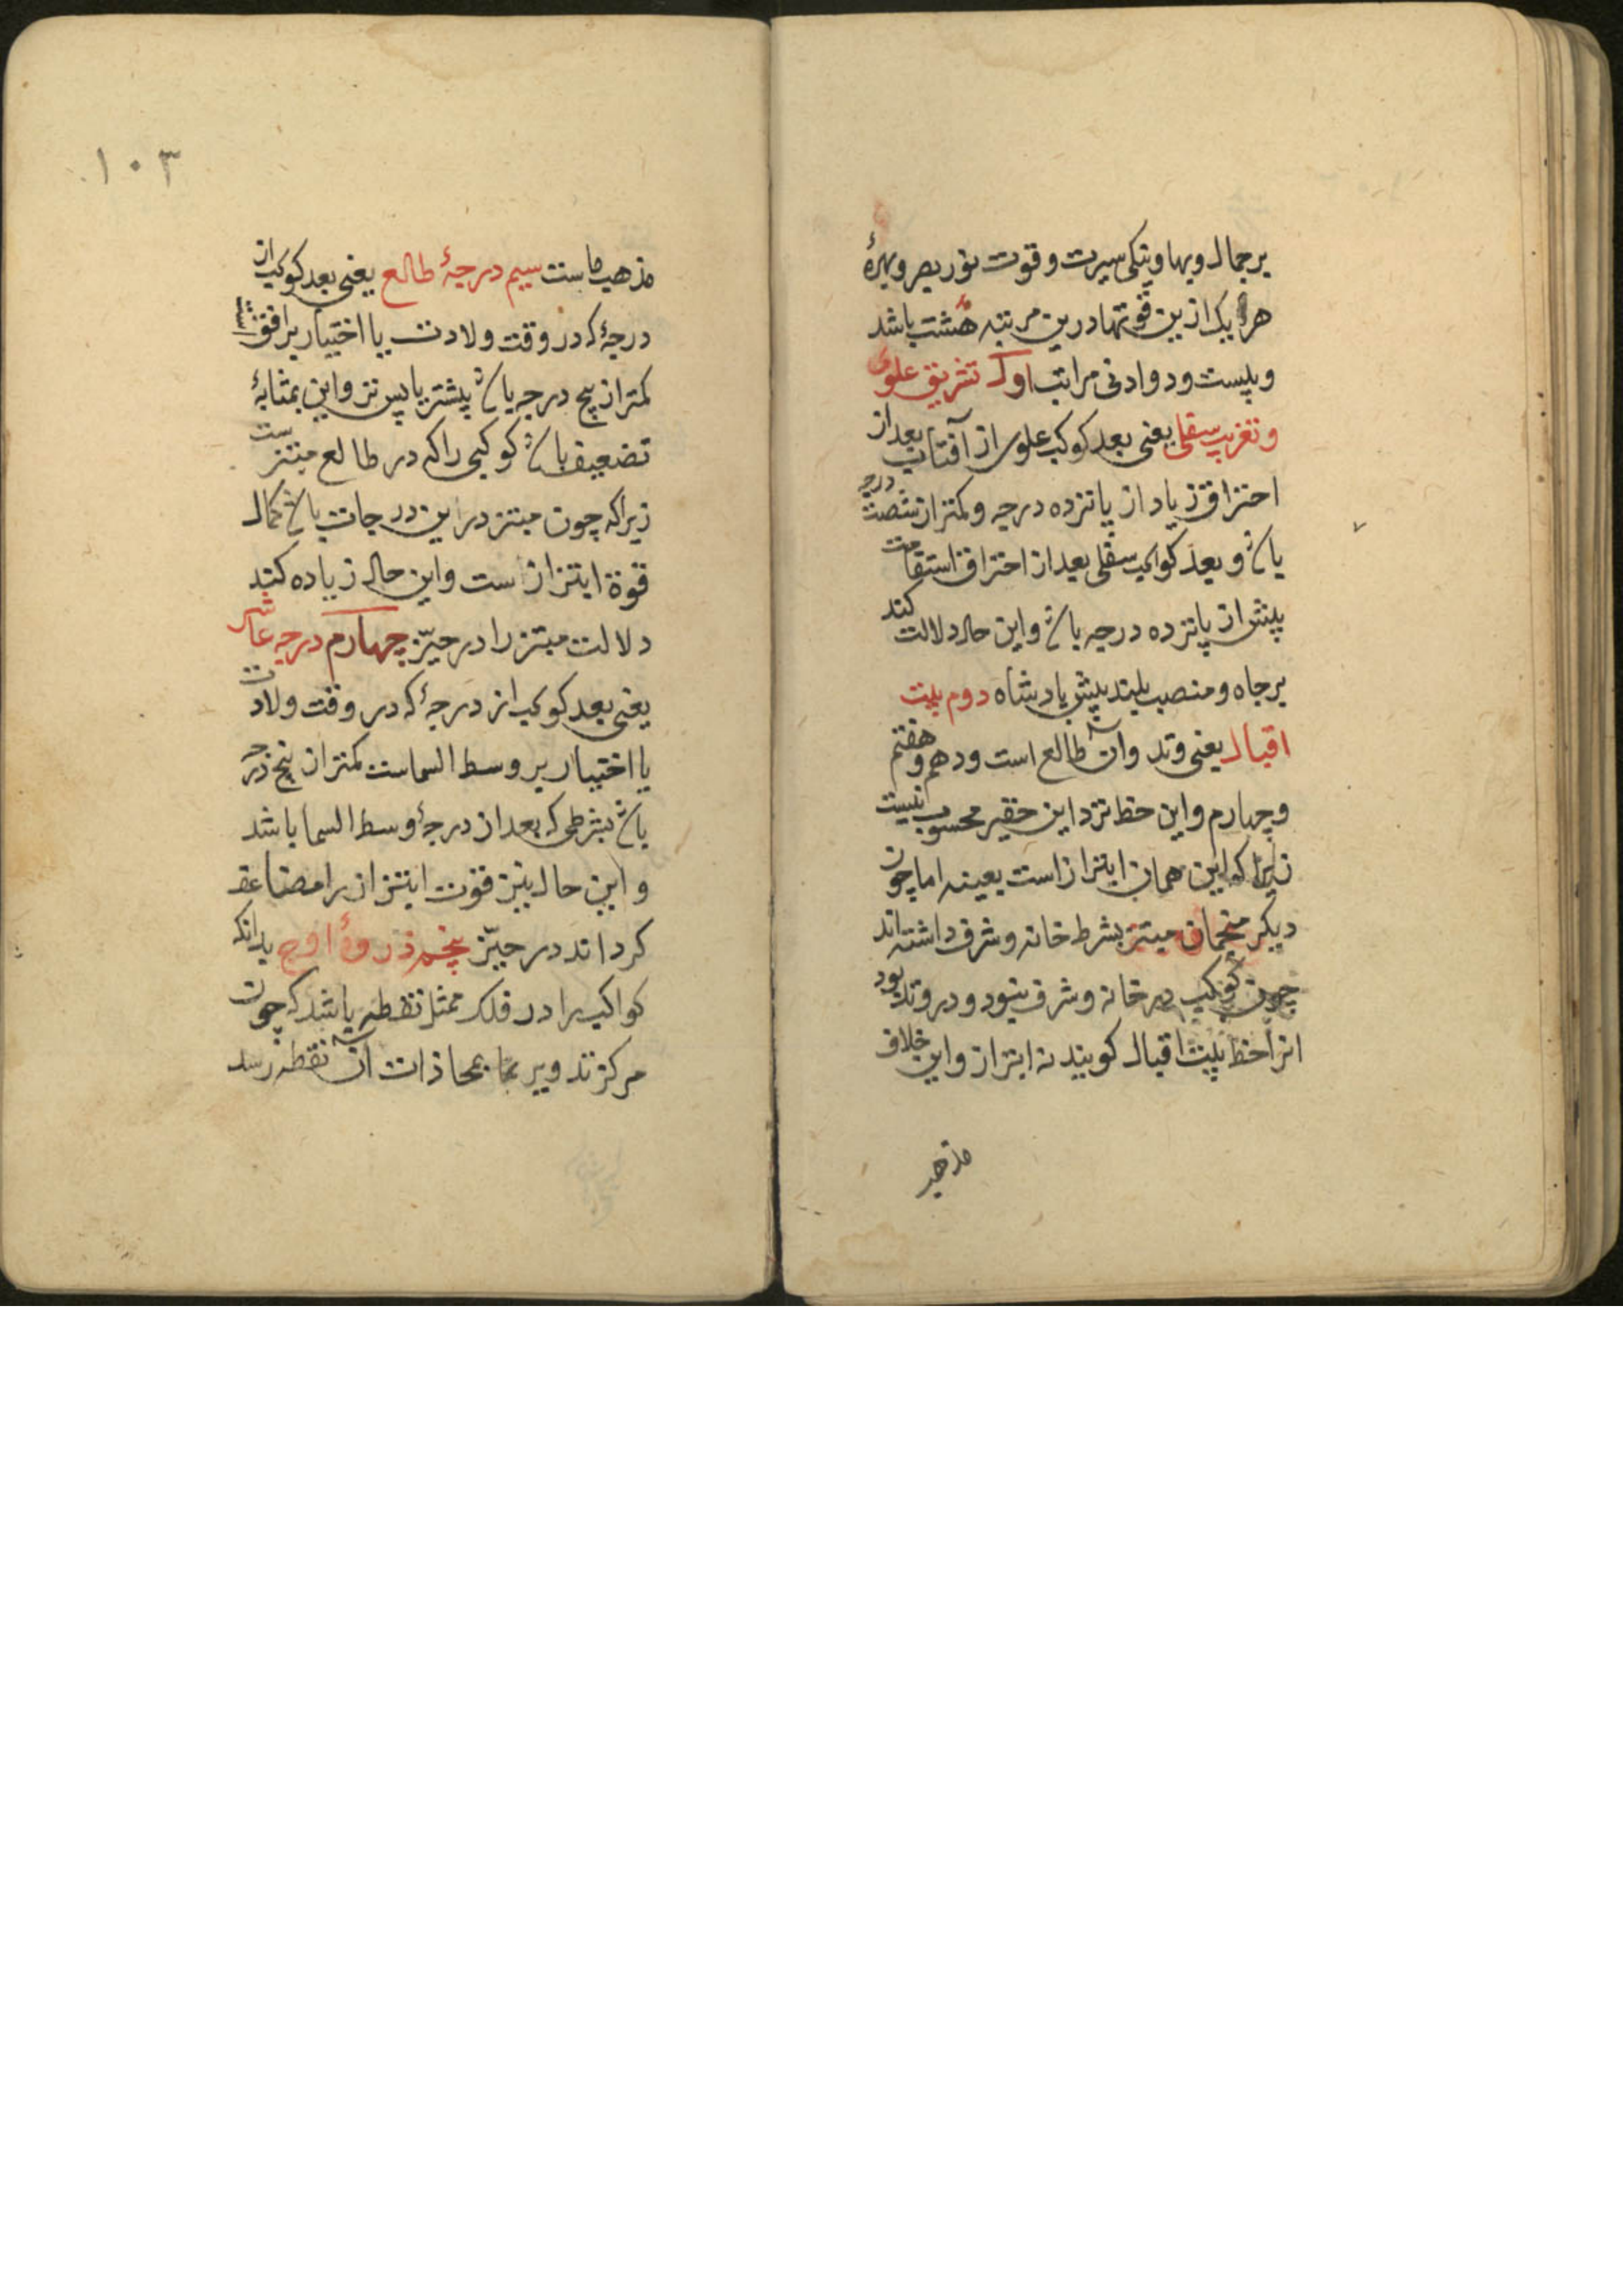 بر جمال و بها و نیکی سیرت و قوت نور بصر و بهرهٔ
هر یک ازین قوتها درین مرتبه هشت باشد
و بیست و دو ادنی مراتب اول تشریق علوی
و تغریب سفلی یعنی بعد کوکب علوی از آفتاب بعد از
احتراق زیاد از پانزده درجه و کمتر از شصت درجه
باش و بعد کواکب سفلی بعد از احتراق استقامت
بیش از پانزده درجه باش و این حال دلالت کند
بر جاه و منصب بلند پیش پادشاه دوم بیت
اقبال یعنی وتد و آن طالع است و دهم و هفتم
و چهارم و این حظ نزد این حقیر محسوب نیست
زیرا که این همان ابتزاز است بعینه اما چون
دیکر منجمان مبتز بشرط خانه و شرف داشته‌اند
چون کوکب در خانه و شرف بنود و در وتد بود
انرا حظ بیت اقبال کویند نه ابتزاز و این خلاف
مذهب
١٠٣
مذهب ماست سیم درجهٔ طالع یعنی بعد کوکب از
درجهٔ که در وقت ولادت یا اختیار بر افق است
کمتر از پنج درجه باش پیشتر یا پس تر و این بمثابهٔ
تضعیف باش کوکبی را که در طالع مبتز ست
زیرا که چون مبتز درین درجات باش کمال
قوة ابتزاز است و این حال زیاده کند
دلالت مبتز را در حیّز چهارم درجه عاشر
یعنی بعد کوکب از درجهٔ که در وقت ولادت
یا اختیار بر وسط السماست کمتر از پنج درجه
باش بشرطی که بعد از درجهٔ وسط السما باشد
و این حال نیز قوت ابتزاز را مضاعف
کرداند در حیّز پنجم ذروهٔ اوج بدانکه
کواکب را در فلک ممثل نقطه باشد که چون
مرکز تدویر بمحاذات آن نقطه رسد